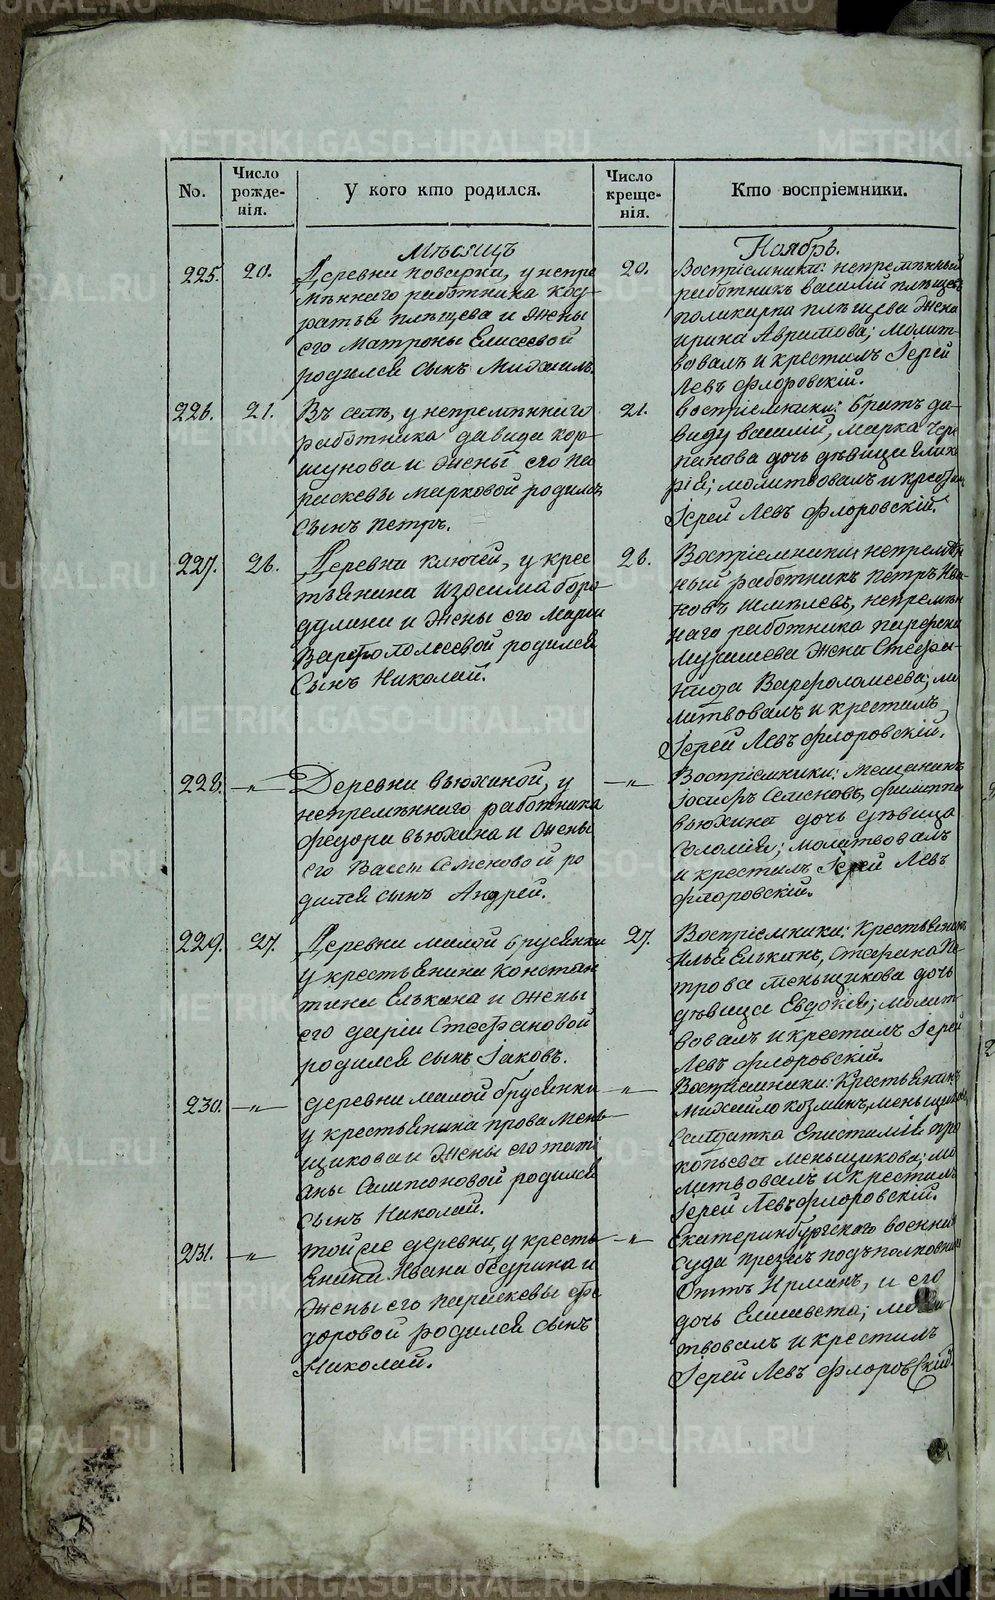 No.
Число рожде-нія.
У кого кто родился.
Число креще-нія.
Кто воспріемники.
Мѣсяцъ
Ноябрь.
225.
20.
Деревни поварни, у непре
мѣннаго работника Код-
ратья плѣщева и жены
его Матроны Елисеевой
родился сынъ Михаилъ.
20.
Воспріемники: непремѣнный
работникъ василій плѣщевъ
поликарпа плѣщева жена
ирина Аврамова; молит-
вовалъ и крестилъ Іерей
Левъ флоровскій.
226.
21.
Въ селѣ, у непремѣннаго
работника давида кор-
шунова и жены его па
раскевы марковой родился
сынъ петръ.
21.
воспріемники: братъ да-
виду василій, марка чере
панова дочь дѣвица глике
рія; молитвовалъ и крестилъ
Іерей Левъ флоровскій.
227.
26.
Деревни ключей, у крес
тьянина Изосима боро
дулина и жены его Марии
Варфоломеевой родился
Сынъ Николай.
26.
Воспріемники непремѣн
ный работникъ петръ Ива
новъ шмелевъ, непремѣн
наго работника парфена
жена Стефа-
нида Варфоламеева; мо
литвовалъ и крестилъ
Іерей Левъ флоровскій.
228.
-"-
Деревни вьюхиной, у
непремѣннаго работника
федора вьюхина и жены
его Вассы Семеновой ро
дился сынъ Андрей.
-"-
Воспріемники: мещанинъ
Іосифъ Семеновъ, филиппа
вьюхина дочь дѣвица
Соломія; молитвовалъ
и крестилъ Іерей Левъ
флоровскій.
229.
27.
Деревни малой брусянки
у крестьянина констан
тина Елькина и жены
его даріи Стефановой
родился сынъ Іаковъ.
27.
Воспріемники: Крестьянинъ
Илья Елькинъ,
меньщикова дочь
дѣвица Евдокія; молит
вовалъ и крестилъ Іерей
Левъ флоровскій.
230.
-"-
деревни малой брусянки
у крестьянина прова мень
щикова и жены его тати
аны Сампсоновой родился
сынъ Николай.
-"-
Воспріемники: Крестьянинъ
михайло козминъ меньщиковъ,
Салдатка Епистамія про
копьева меньщикова; мо
литвовалъ и крестилъ
Іерей Левъ флоровскій.
231.
-"-
той же деревни, у кресть
янина Ивана бедрина и
жены его параскевы фе
доровой родился сынъ
Николай.
-"-
Екатеринбургскаго военна
суда презесъ подъполковникъ
Оттъ Ирманъ, и его
дочь Елисавета; мо
твовалъ и крестилъ
Іерей Левъ флоровскій.
METRIKI.GASO-URAL.RU